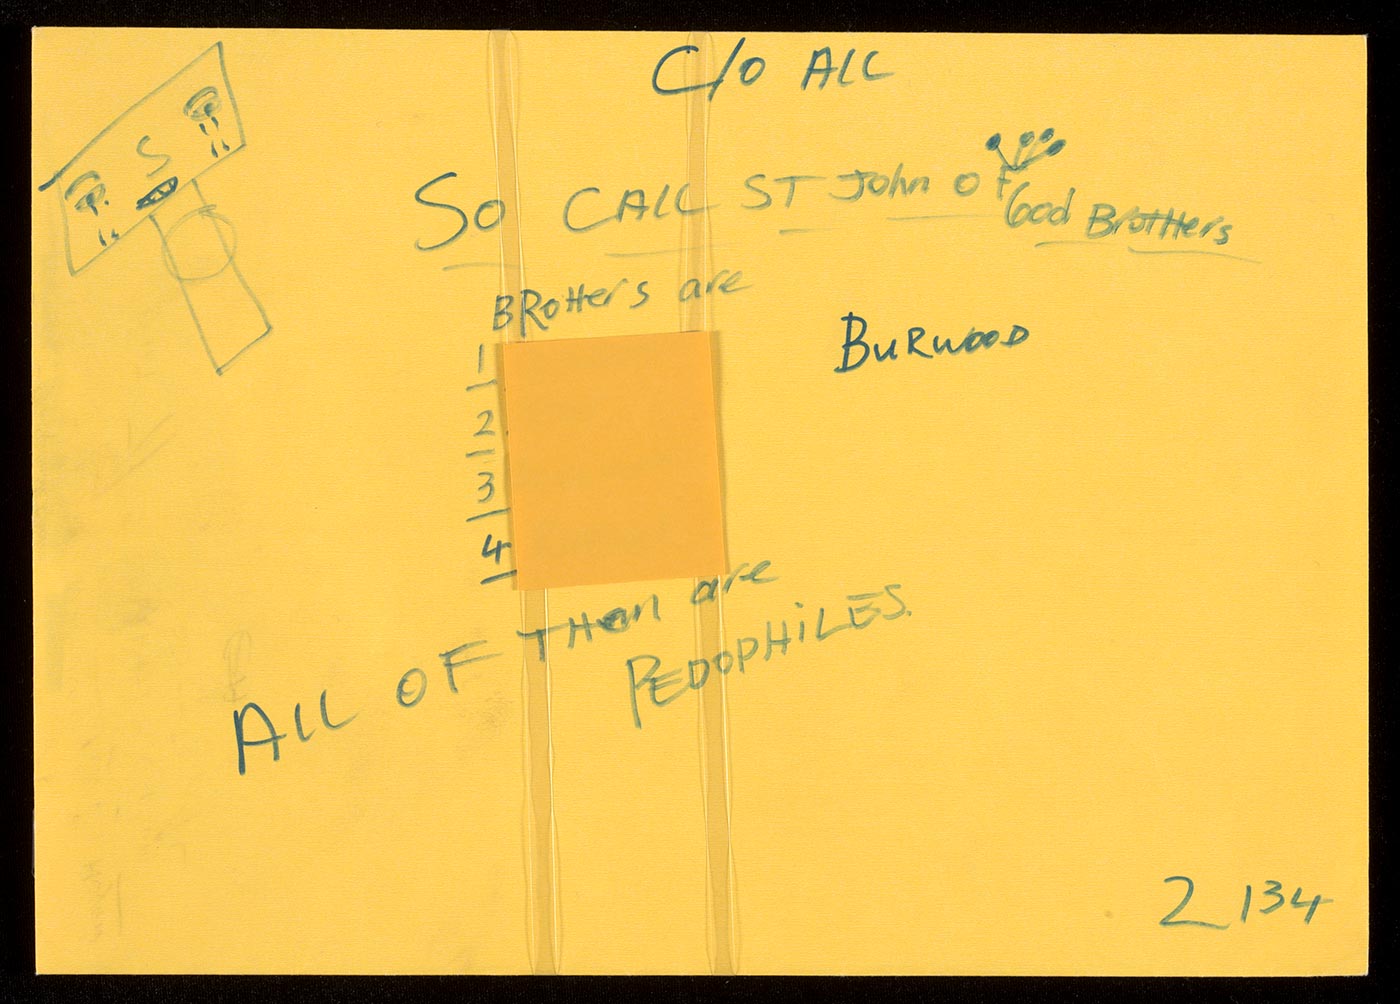 C/O ALL
S
SO CALL ST John OF God BrottHers
BRotters are
BURWOOD
1
2
3
4
ALL OF THem are
PEDOPHiLES.
2134